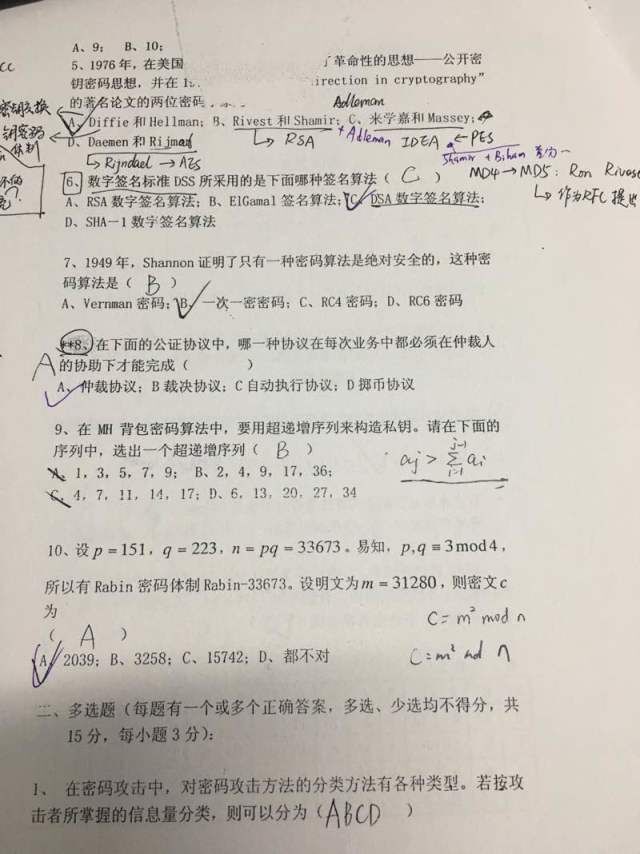 A、9； B、10；
5、1976 年，在美国 了革命性的思想——公开密
钥密码思想，并在 1 irection in cryptography”
的著名论文的两位密码
Adleman
A、Diffie 和 Hellman；B、Rivest 和 Shamir；C、来学嘉和 Massey；
D、Daemen 和 Rijman
RSA + Adleman IDEA ← PES
Shamir + Biham
Rijndael → AES
MD4 → MD5: Ron Rives
作为RFC提出
6、数字签名标准 DSS 所采用的是下面哪种签名算法（ C ）
A、RSA 数字签名算法；B、ElGamal 签名算法；C、DSA 数字签名算法；
D、SHA－1 数字签名算法
7、1949 年，Shannon 证明了只有一种密码算法是绝对安全的，这种密
码算法是（ B ）
A、Vernman 密码；B、一次一密密码；C、RC4 密码；D、RC6 密码
**8、在下面的公证协议中，哪一种协议在每次业务中都必须在仲裁人
A 的协助下才能完成（ ）
A、仲裁协议；B 裁决协议；C 自动执行协议；D 掷币协议
9、在 MH 背包密码算法中，要用超递增序列来构造私钥。请在下面的
序列中，选出一个超递增序列（ B ）
aj > Σ ai j-1 i=1
A、1，3，5，7，9； B、2，4，9，17，36；
C、4，7，11，14，17；D、6，13，20，27，34
10、设 p = 151，q = 223，n = pq = 33673。易知，p,q ≡ 3 mod 4，
所以有 Rabin 密码体制 Rabin-33673。设明文为 m = 31280，则密文 c
为
C = m² mod n
（ A ）
A、2039；B、3258；C、15742；D、都不对
C = m² md n
二、多选题（每题有一个或多个正确答案，多选、少选均不得分，共
15 分，每小题 3 分）：
1、 在密码攻击中，对密码攻击方法的分类方法有各种类型。若按攻
击者所掌握的信息量分类，则可以分为（ABCD ）